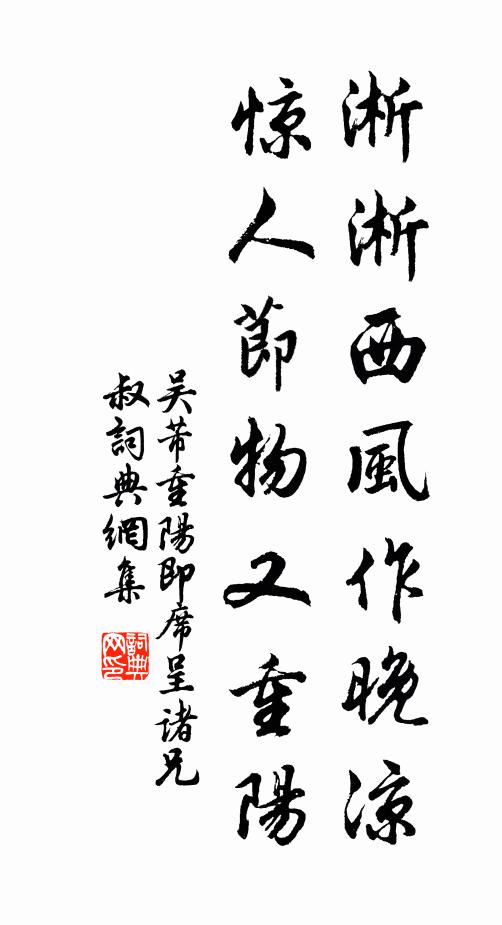 淅淅西風作晚涼
惊人節物又重陽
吴芾重陽即席呈诸兄
叔詞典網集
詞典网印